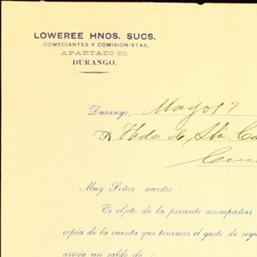 LOWEREE HNOS. SUCS.
COMECIANTES Y COMISIONISTAS,
APARTADO 20.
DURANGO.
Durango, Mayo 17
Hda de Sta Ca
Muy Señor nuestro:
Es objeto de la presente acompañar
copia de la cuenta que tenemos el gusto de segu
arroja un saldo de: